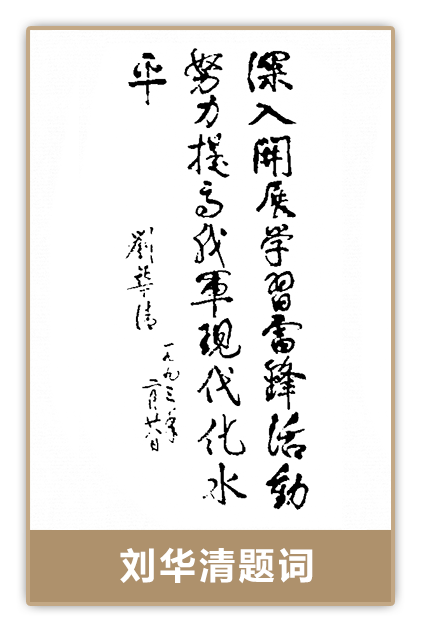 深入開展学習雷鋒活動
努力提高我軍現代化水
平
劉華清
一九九三年
二月廿八日
刘华清题词